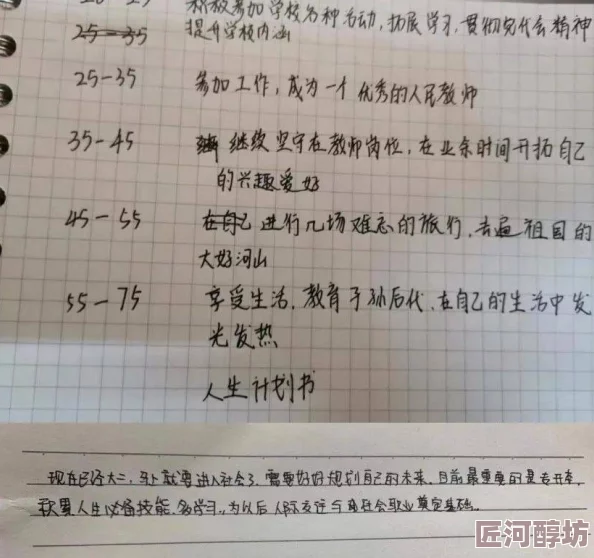 积极参加学校各种活动，拓展学习，贯彻党代会精神
25-35
提升学校内涵
25-35 参加工作，成为一个优秀的人民教师
35-45 继续坚守在教师岗位，在业余时间开拓自己
的兴趣爱好
45-55 在自己 进行几场难忘的旅行，去遍祖国的
大好河山
55-75 享受生活，教育子孙后代，在自己的生活中发
光发热
人生计划书
现在已经大二，马上就要进入社会了，需要好好规划自己的未来。目前最重要的是专升本，
积累人生必备技能，多学习，为以后人际交往与社会职业奠定基础。
匠河醇坊